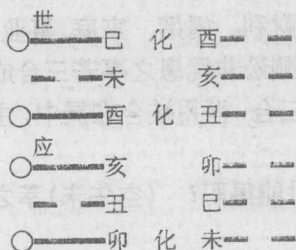 世
巳 化 酉
未 亥
酉 化 丑
应
亥 卯
丑 巳
卯 化 未